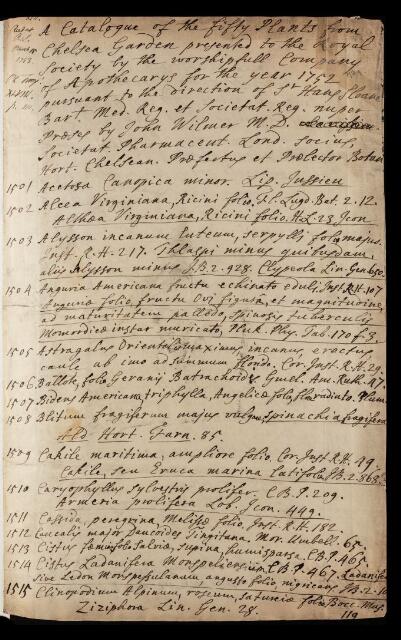 A Catalogue of the fifty Plants from
Chelsea Garden presented to the Royal
Society by the worshipfull Company
of Apothecarys for the year 1752
pursuant to the direction of Sr Hans Sloane
Bart. Med. Reg. et Societat. Reg. nuper
Præses by John Wilmer M.D.
Societat. Pharmaceut. Lond. socius
Hort. Chelsean. Præfectus et Prælector Botan
1501 Acetosa Canopica minor. Lip. Jussieu
1502 Alcea Virginiana, Ricini folio, Fl. Lugd. Bat. 2. 12.
Althæa Virginiana, Ricini folio. H.L. 23 Icon
1503 Alysson incanum luteum, serpylli folio majus.
Inst. R.H. 217. Thlaspi minus quibusdam,
aliis Alysson minus J.B. 2. 928. Clypeola Lin. Gen. 650.
1504 Anguria Americana fructu echinato eduli, Inst. R.H. 107
Anguriæ folio, fructu Ovi figura, et magnitudine,
ad maturitatem pallido, spinosis tuberculis
Momordicæ instar muricato, Pluk. Phy. Tab. 170 f. 3.
1505 Astragalus Orientalis maximus incanus, erectus
caule ab imo ad summum florido. Cor. Inst. R.H. 29.
1506 Ballote, folio Geranij Batrachoidis Gmel. Am. Ruth. 47.
1507 Bidens Americana, triphylla, Angelicæ folio, flo. radiato. Plum
1508 Blitum fragiferum majus vulgo, Spinachia fragifera
Ald Hort. Farn. 85.
1509 Cakile maritima, ampliore folio. Cor. Inst. R.H. 49.
Cakile, seu Eruca marina latifolia, J.B. 2. 868.
1510 Caryophyllus Sylvestris prolifer. C.B.P. 209.
Armeria prolifera Lob. Icon. 449.
1511 Cassida, peregrina, Melissæ folio, Inst. R.H. 182.
1512 Caucalis major Daucoides Tingitana. Mor. Umbell. 65.
1513 Cistus fæmina folio Salviæ, supina, humi sparsa. C.B.P. 465.
1514 Cistus Ladanifera Monspeliensium C.B.P. 467. Ladanifera
sive Ledon Monspessulanum angusto folio nigricans J.B. 2. 10
1515 Clinopodium Alpinum, roseum, Saturciæ folio Bocc. Mus.
Ziziphora Lin. Gen. 28. 119